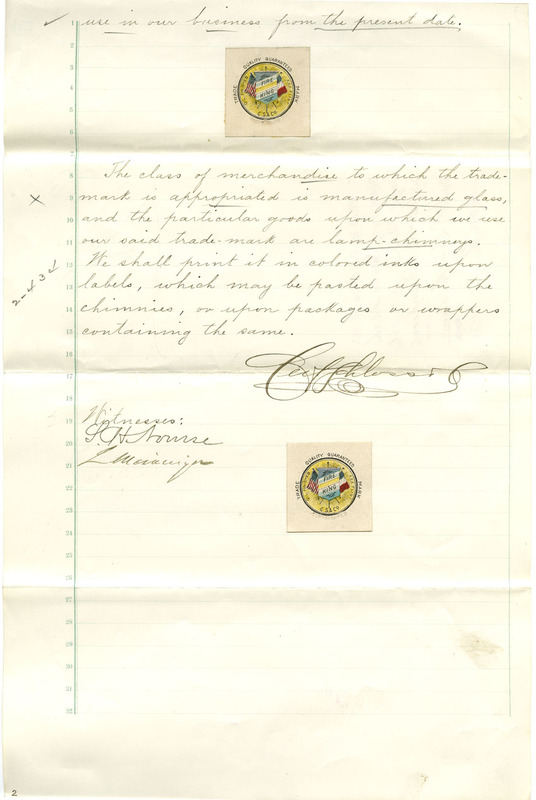 ✓ 1 use in our business from the present date.
2
3
4
5
6
7
TRADE QUALITY GUARANTEED MARK
FIRE
KING
C.S.&CO
8 The class of merchandise to which the trade-
X 9 mark is appropriated is manufactured glass,
10 and the particular goods upon which we use
11 our said trade-mark are lamp-chimneys.
12 We shall print it in colored inks upon
2-434
13 labels, which may be pasted upon the
14 chimnies, or upon packages or wrappers
15 containing the same.
16
17
18
Schloss & C
19 Witnesses:
20 S. H. Nourse
21
22
23
24
25
26
27
28
29
30
31
32
TRADE QUALITY GUARANTEED MARK
FIRE
KING
C.S.&CO
2